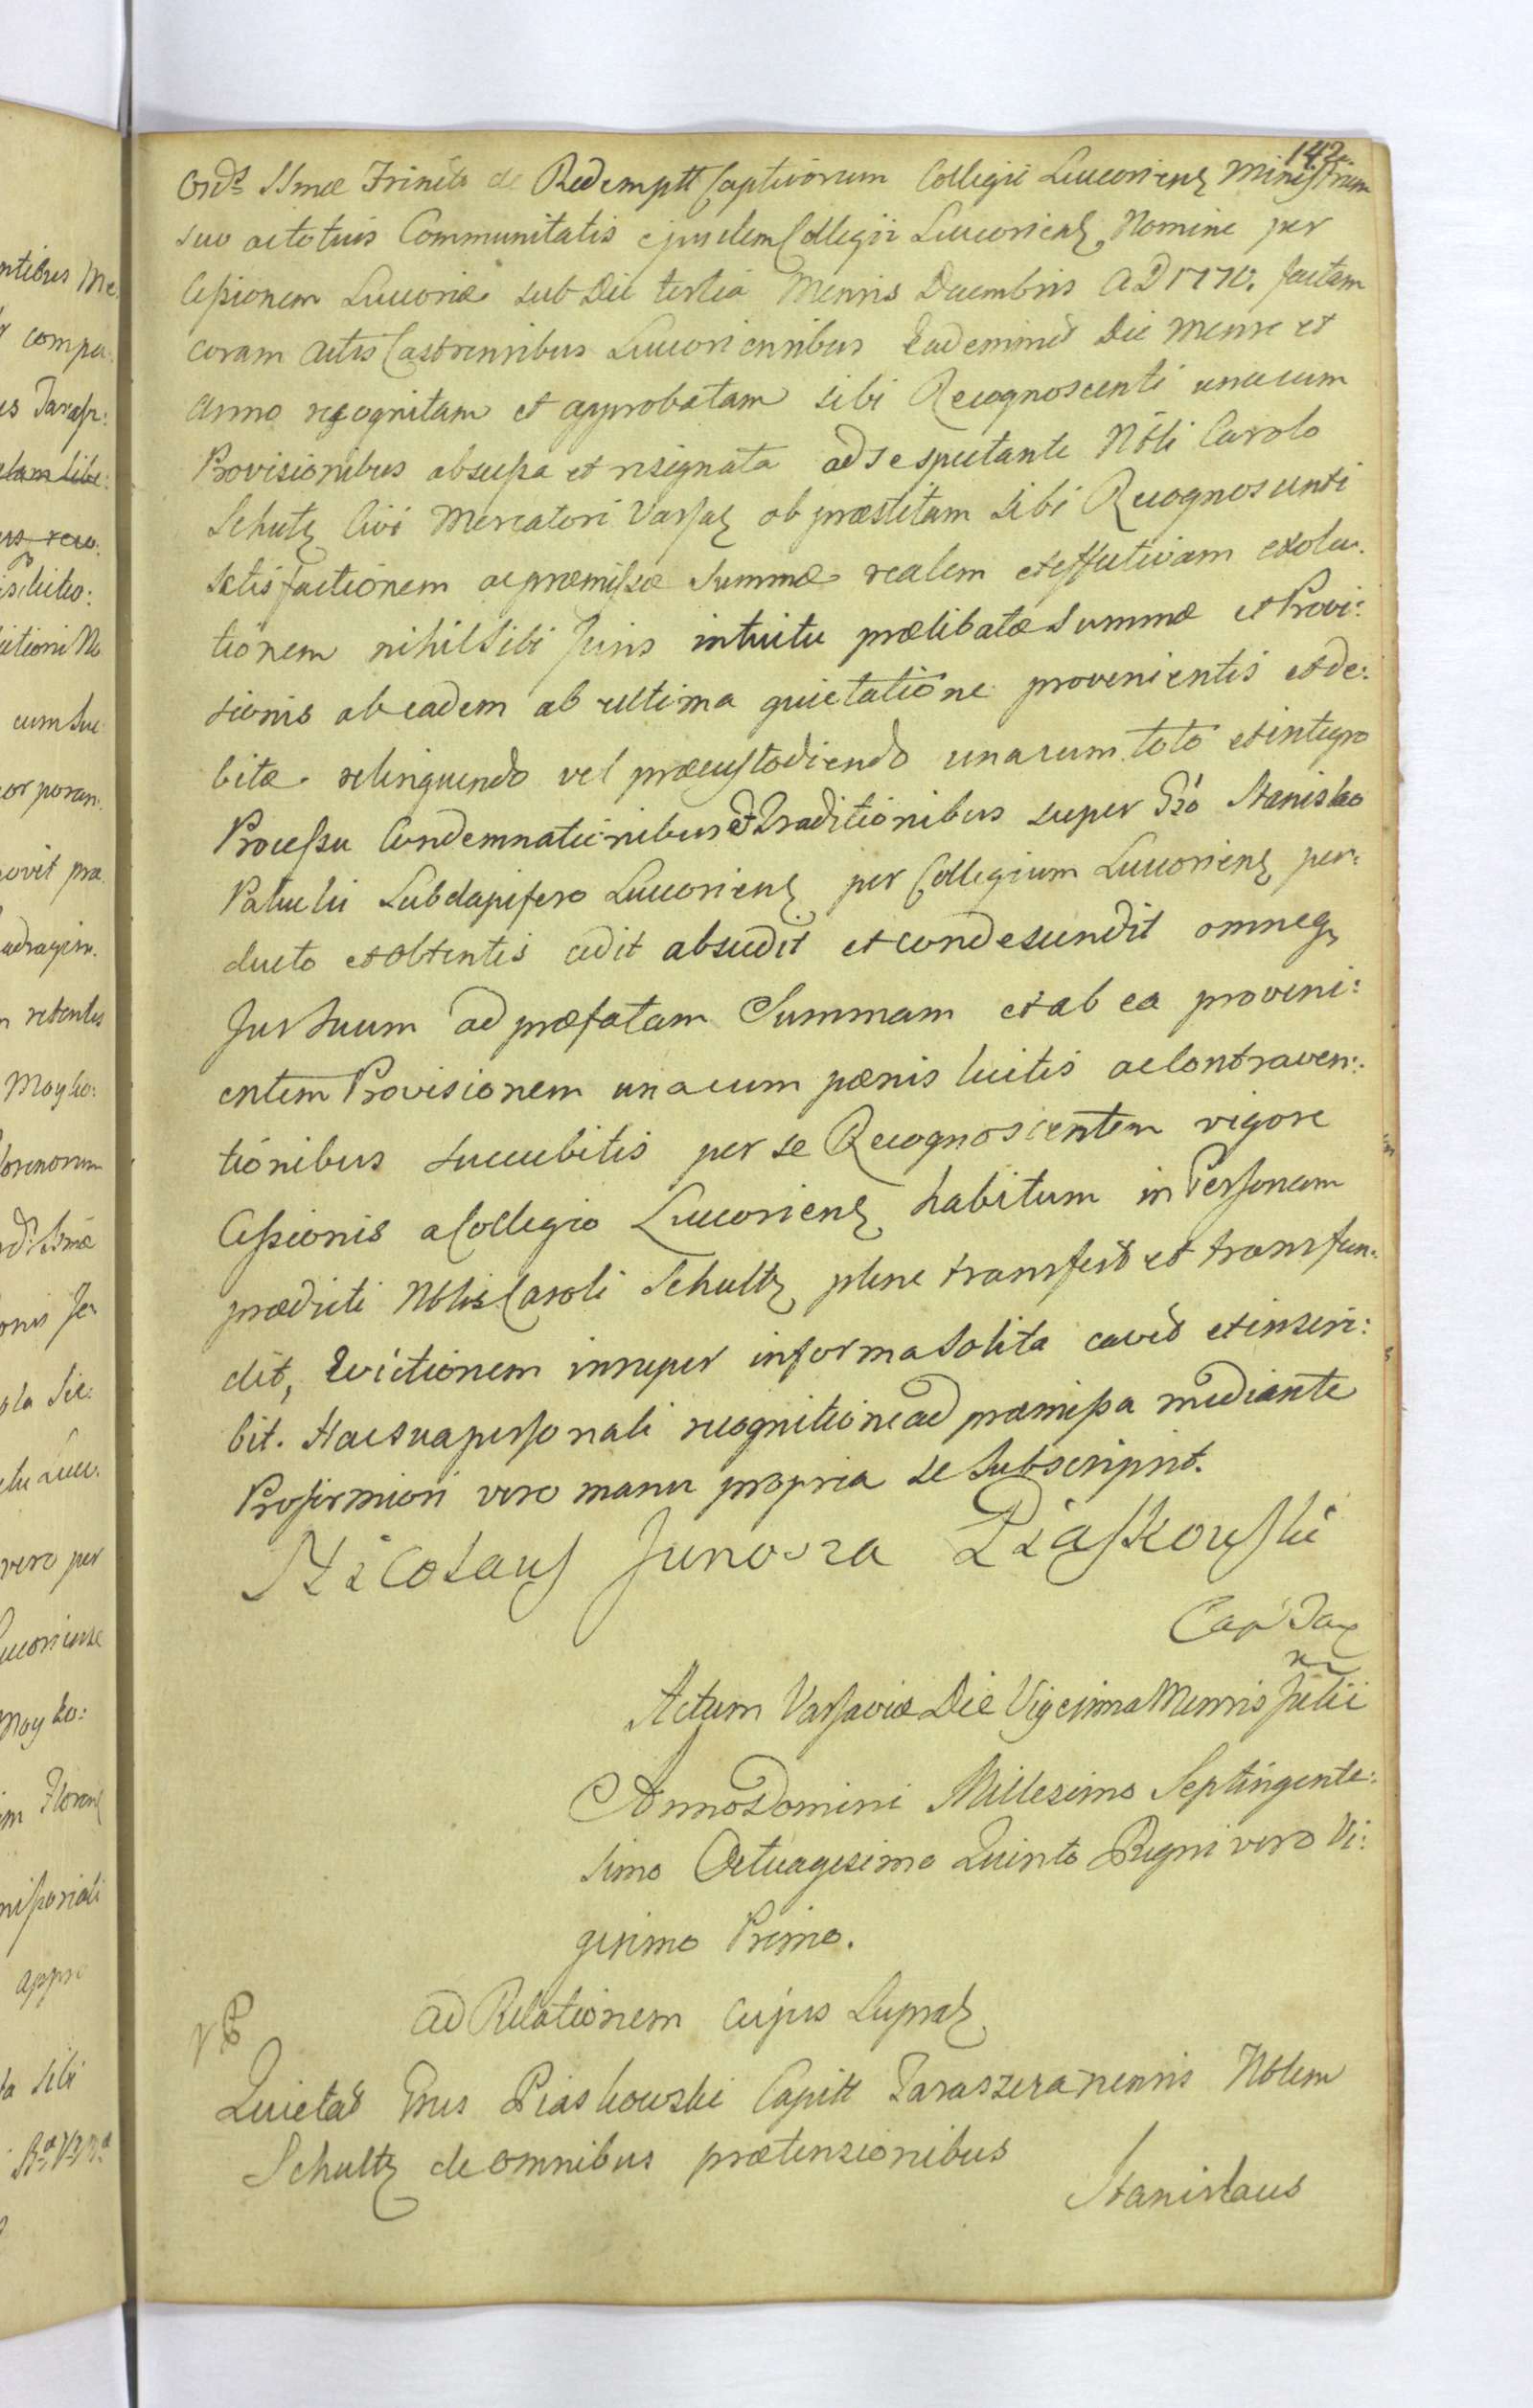 142.
Ord: SSmæ Trinit: de Redemptt Captivorum Collegii Luceoriens Ministrum
suo ac totius Communitatis ejusdem Collegii Luceoriens Nomine per
Cessionem Luceoriæ sub Die tertia Mensis Decembris AD 1770. factam
coram Actis Castrensibus Luceoriensibus Eademmet Die Mense et
Anno recognitam et approbatam sibi Recognoscenti unacum
Provisionibus abscessa et resignata ad se spectante Nbli Carolo
Schutz Civi Mercatori Varsas ob præstitam sibi Recognoscenti
satisfactionem ac præmissæ Summæ realem et effectivam exolu:
tionem nihil sibi Juris intuitu prælibatæ Summæ et Provi:
sionis ab eadem ab ultima quietatione provenientis et de:
bitæ relinquendo vel præcustodiendo unacum toto et integro
Processu Condemnationibus et Traditionibus super Gso Stanislao
Subdapifero Luceoriens per Collegium Luceoriens per:
ducto et obtentis cedit abscedit et condescendit omneq
Jus suum ad præfatam Summam et ab ea proveni:
entem Provisionem unacum pœnis luitis ac Contraven:
tionibus succubitis per se Recognoscentem vigore
Cessionis a Collegio Luceoriens habitum in Personam
prædicti Nblis Caroli Schultz plene transfert et transfun:
dit, Evictionem insuper in forma solita cavet et inscri:
bit. Hac sua personali recognitione ad præmissa mediante
Pro firmiori vero manu propria se subscripsit.
Nicolaus Junosza Piaskowski
Cap Tar
Actum Varsaviæ Die Vigesima Mensis Julii
Anno Domini Millesimo Septingente:
simo Octuagesimo Quinto Regni vero Vi:
gesimo Primo.
ad Relationem cujus supras
Quietat Gnus Piaskowski Capitt Taraszczanensis Nblem
Schultz de omnibus prætensionibus
Stanislaus